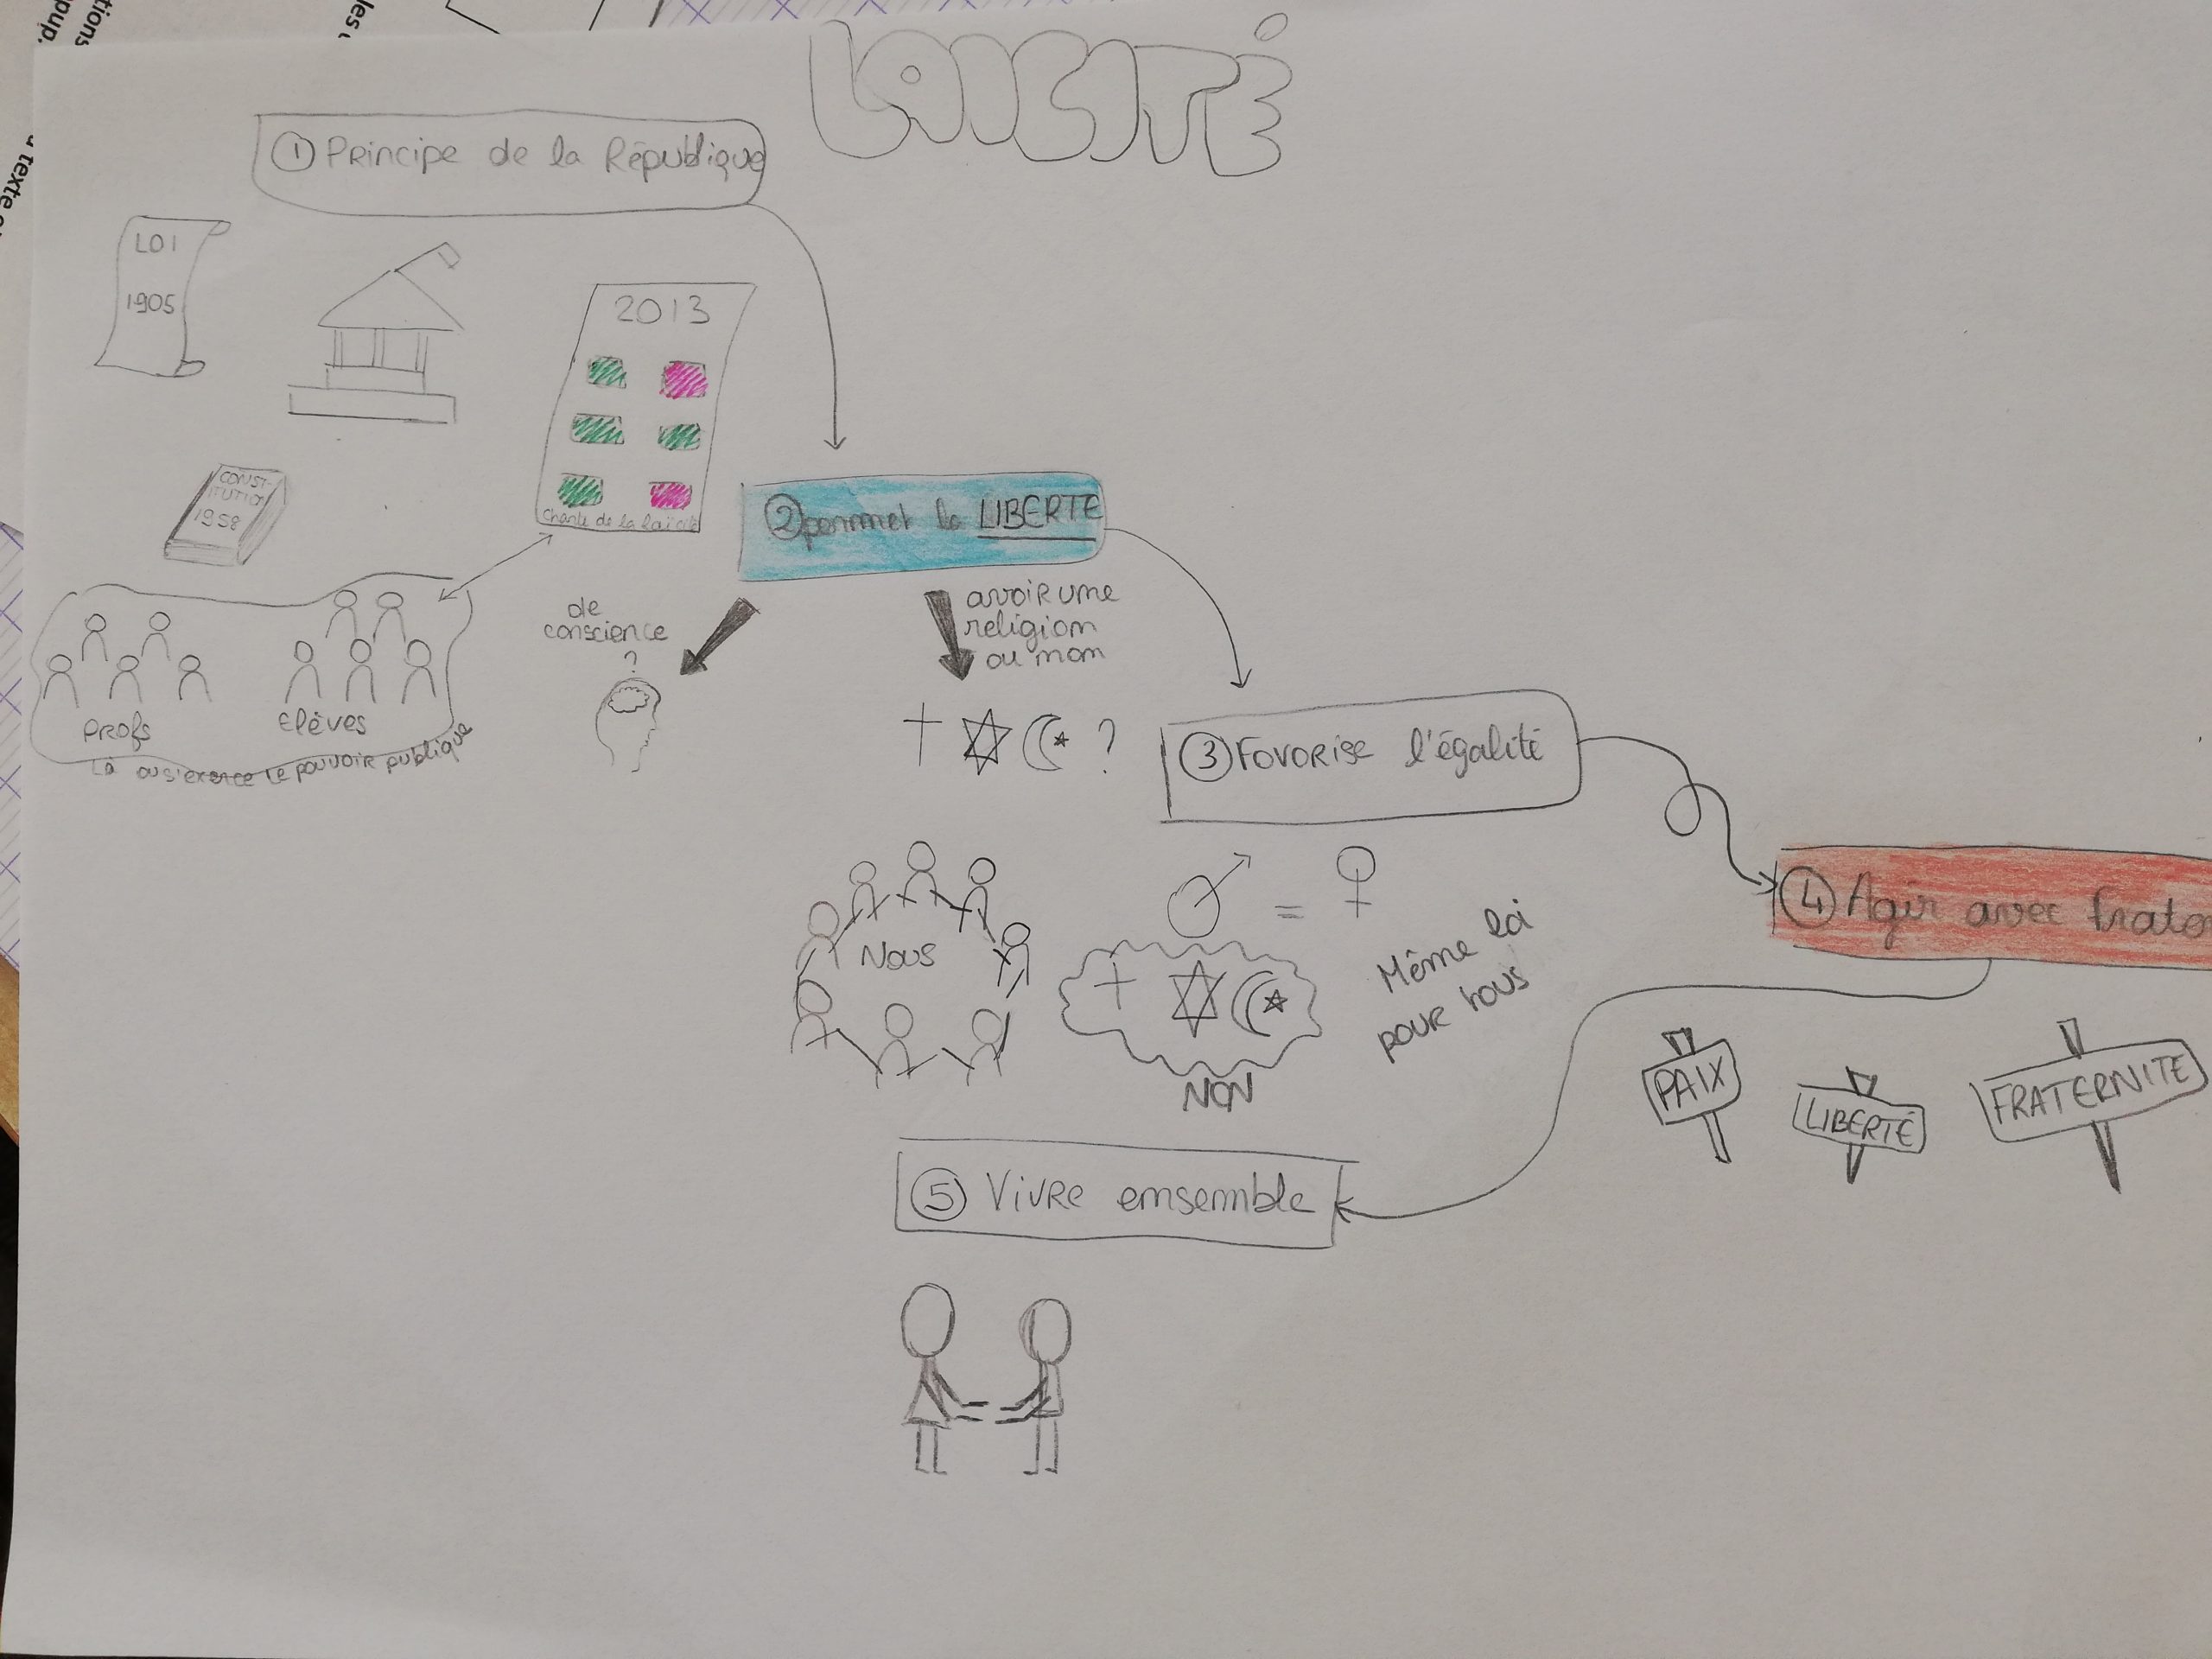 tions
pup.
les
texte
LAICITÉ
① Principe de la République
LOI
1905
2013
Charte de la laïcité
CONST-
ITUTIO
1958
Profs
Elèves
Là ou s'exerce le pouvoir publique
② permet la LIBERTE
de
conscience
?
avoir une
religion
ou non
?
③ Favorise l'égalité
Nous
=
Même loi
pour tous
NON
④ Agir avec frater
PAIX
LIBERTÉ
FRATERNITE
⑤ Vivre ensemble